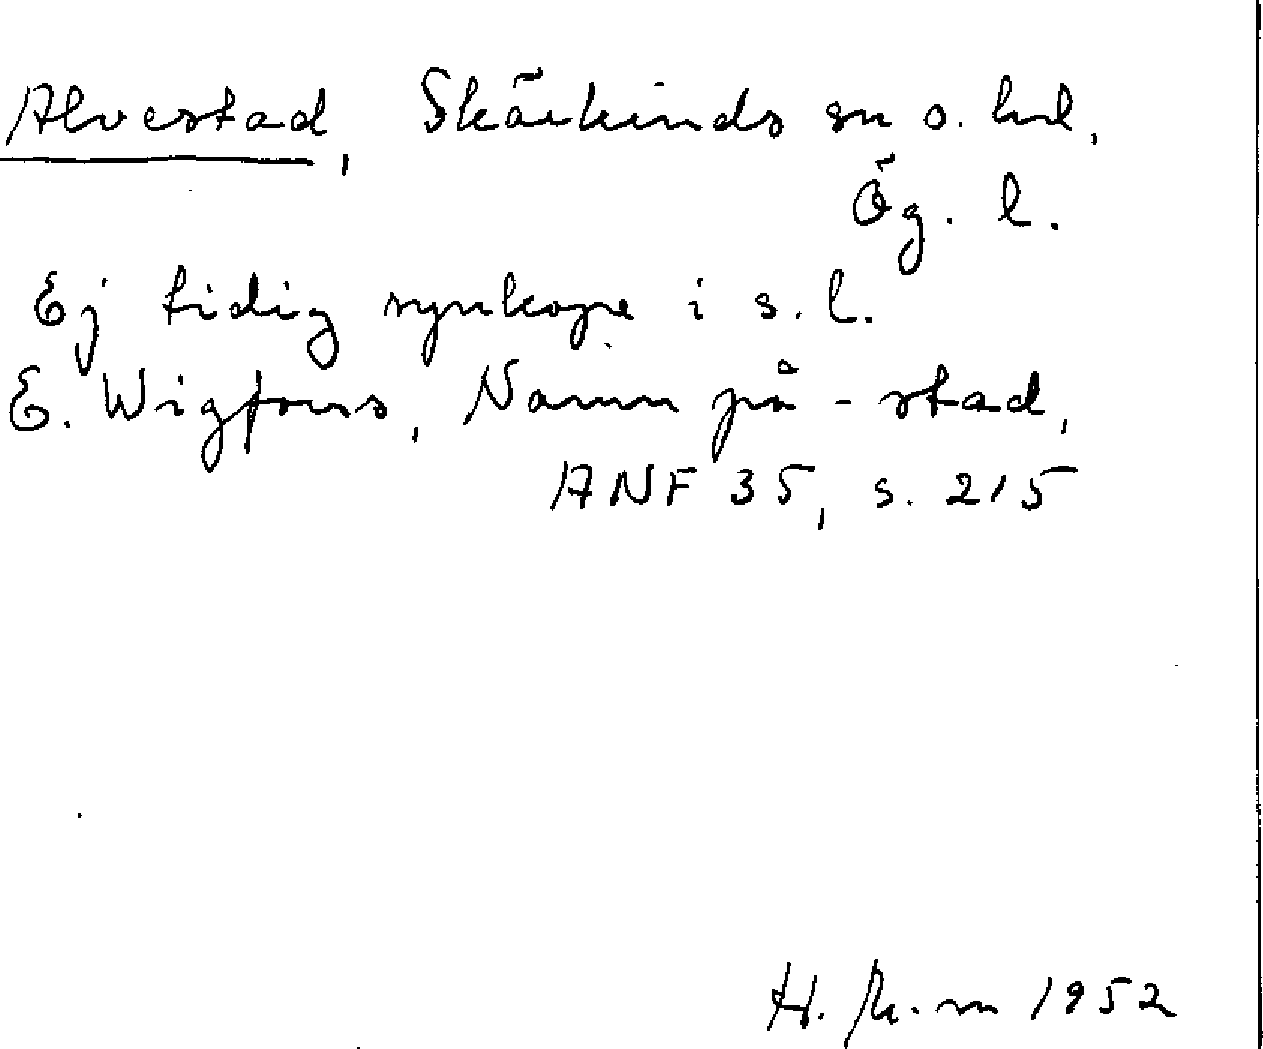 Alvestad, Skärkinds sn o. hd,
Ög. l.
Ej tidig synkope i s. l.
E. Wigforss, Namn på -stad,
ANF 35, s. 215
H. 1952